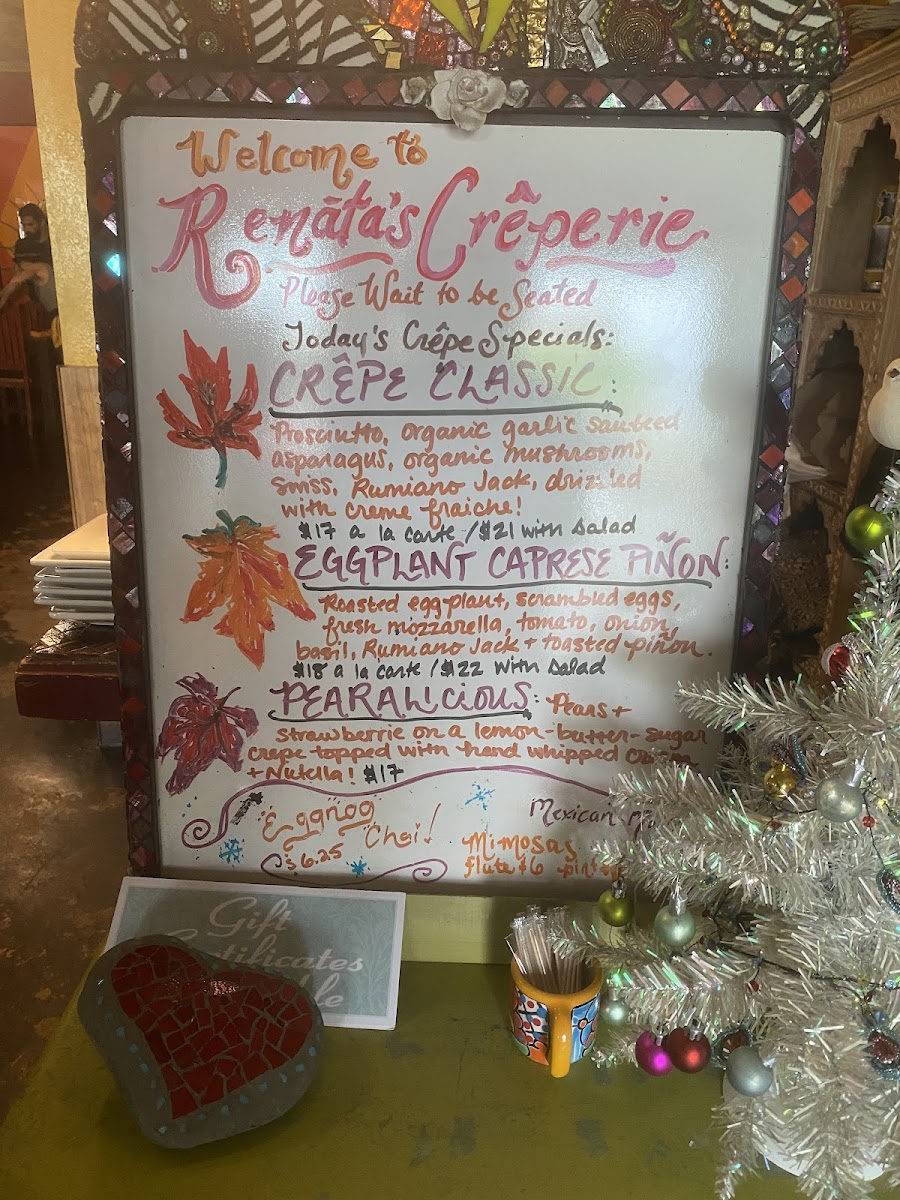 Welcome to
Renāta's Crêperie
Please Wait to be Seated
Today's Crêpe Specials:
CRÊPE CLASSIC:
Prosciutto, organic garlic sauteed
asparagus, organic mushrooms,
Swiss, Rumiano Jack, drizzled
with creme fraiche!
$17 a la carte / $21 with Salad
EGGPLANT CAPRESE PIÑON:
Roasted eggplant, scrambled eggs,
fresh mozzarella, tomato, onion,
basil, Rumiano Jack + toasted piñon.
$18 a la carte / $22 with Salad
PEARALICIOUS: Pears +
Strawberrie on a lemon-butter-sugar
Crepe topped with hand whipped cream
+ Nutella! $17
Eggnog
Chai!
$6.25
Mexican
Mimosas
flute $6
Gift
Certificates